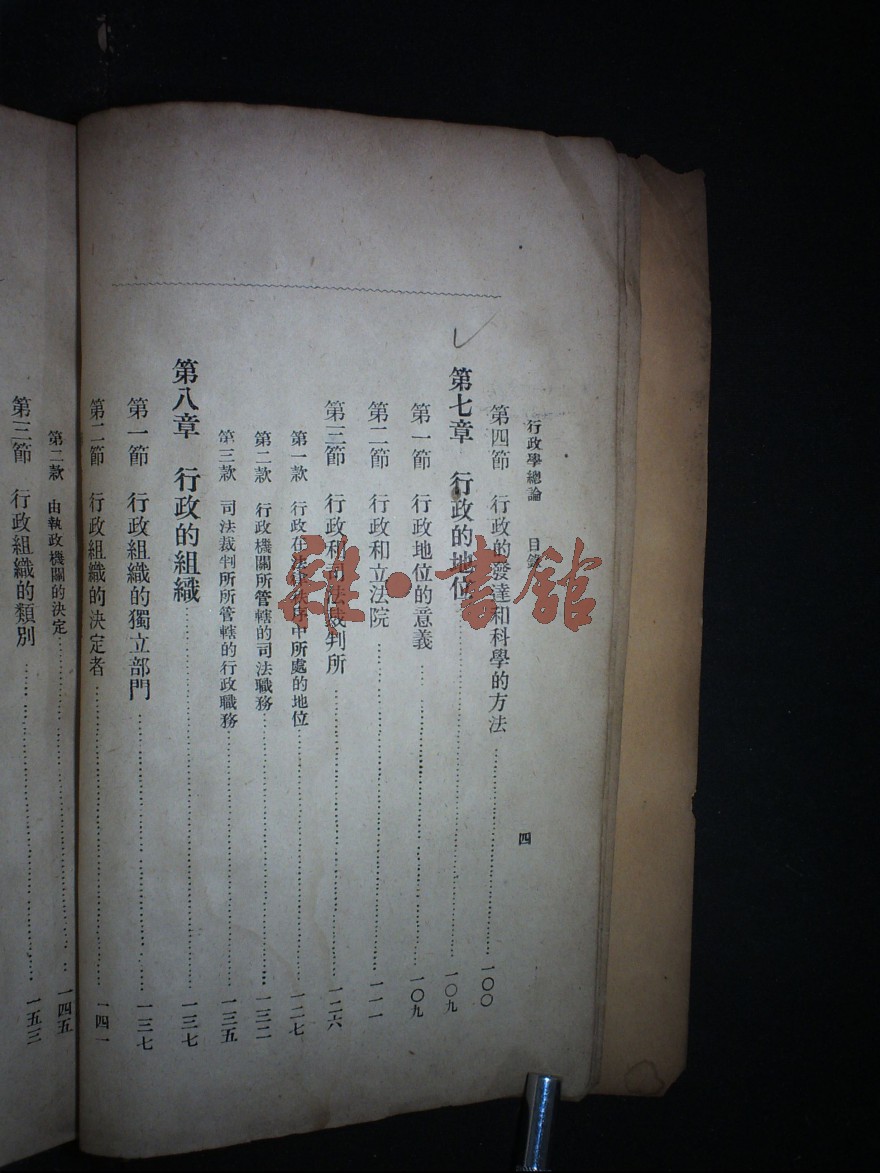 行政學總論 目錄
四
第四節 行政的發達和科學的方法 一〇〇
第七章 行政的地位 一〇九
第一節 行政地位的意義 一〇九
第二節 行政和立法院 一一一
第三節 行政和司法裁判所 一二六
第一款 行政在法律秩序中所處的地位 一二七
第二款 行政機關所管轄的司法職務 一三二
第三款 司法裁判所所管轄的行政職務 一三五
第八章 行政的組織 一三七
第一節 行政組織的獨立部門 一三七
第二節 行政組織的決定者 一四一
第二款 由執政機關的決定 一四五
第三節 行政組織的類別 一五三
雜·書館